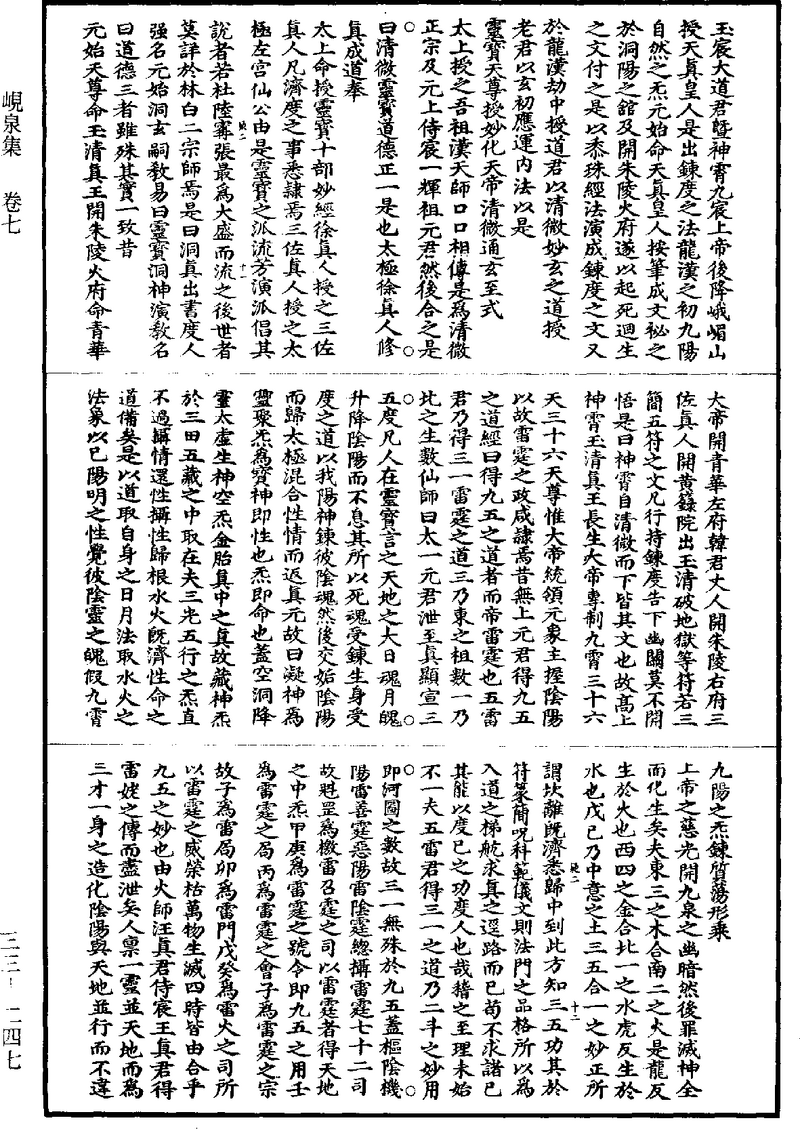 玉宸大道君暨神霄九宸上帝後降峨嵋山
授天真皇人是出鍊度之法龍漢之初九陽
自然之炁元始命天真皇人按筆成文祕之
於洞陽之舘及開朱陵火府遂以起死迴生
之文付之是以黍珠經法演成鍊度之文又
於龍漢劫中授道君以清微妙玄之道授
老君以玄初應運内法以是
靈寶天尊授妙化天帝清微通玄至式
太上授之吾祖漢天師口口相傳是爲清微
正宗及元上侍宸一輝祖元君然後合之是
曰清微靈寶道德正一是也太極徐真人修
真成道奉
太上命授靈寶十部妙經徐真人授之三佐
真人凡濟度之事悉隷焉三佐真人授之太
極左宫仙公由是靈寶之派流芳演派倡其
説者若杜陸甯張最爲大盛而流之後世者
莫詳於林白二宗師焉是曰洞真出書度人
强名元始洞玄嗣教易曰靈寶洞神演教名
曰道德三者雖殊其實一致昔
元始天尊命玉清真王開朱陵火府命青華
大帝開青華左府韓君丈人開朱陵右府三
佐真人開黄籙院出玉清破地獄等符若三
簡五符之文凡行持鍊度告下幽關莫不開
悟是曰神霄自清微而下皆其文也故髙上
神霄玉清真王長生大帝專制九霄三十六
天三十六天尊惟大帝統領元象主握陰陽
以故雷霆之政咸隷焉昔無上元君得九五
之道經曰得九五之道者而帝雷霆也五雷
君乃得三一雷霆之道三乃東之祖數一乃
北之生數仙師曰太一元君泄至真顯宣三
五度凡人在靈寶言之天地之大日魂月魄
升降陰陽而不息其所以死魂受鍊生身受
度之道以我陽神鍊彼陰魂然後交姤陰陽
而歸太極混合性情而返真元故曰凝神爲
靈聚炁爲寶神即性也炁即命也蓋空洞降
靈太虚生神空炁金胎真中之真故藏神炁
於三田五藏之中取在夫三光五行之炁直
不過攝情還性攝性歸根水火既濟性命之
道備矣是以道取自身之日月法取水火之
法象以已陽明之性覺彼陰靈之魄假九霄
九陽之炁鍊質蕩形乘
上帝之慈光開九泉之幽暗然後罪滅神全
而化生矣夫東三之木合南二之火是龍反
生於火也西四之金合北一之水虎反生於
水也戊已乃中意之土三五合一之妙正所
謂坎離既濟悉歸中到此方知三五功其於
符篆簡呪科範儀文則法門之品格所以爲
入道之梯航求真之逕路而已苟不求諸已
其能以度已之功度人也哉稽之至理未始
不一夫五雷君得三一之道乃二斗之妙用
即河圖之數故三一無殊於九五蓋樞陰機
陽雷善霆惡陽雷陰霆總攝雷霆七十二司
故魁罡爲檄雷召霆之司以雷霆者得天地
之中炁甲庚爲雷霆之號令即九五之用壬
爲雷霆之局丙爲雷霆之會子爲雷霆之宗
故子爲雷局卯爲雷門戊癸爲雷火之司所
以雷霆之威榮枯萬物生滅四時皆由合乎
九五之妙也由火師汪真君侍宸王真君得
雷姥之傳而盡泄矣人禀一靈並天地而爲
三才一身之造化陰陽與天地並行而不違
峴泉集　卷七
三三－二四七